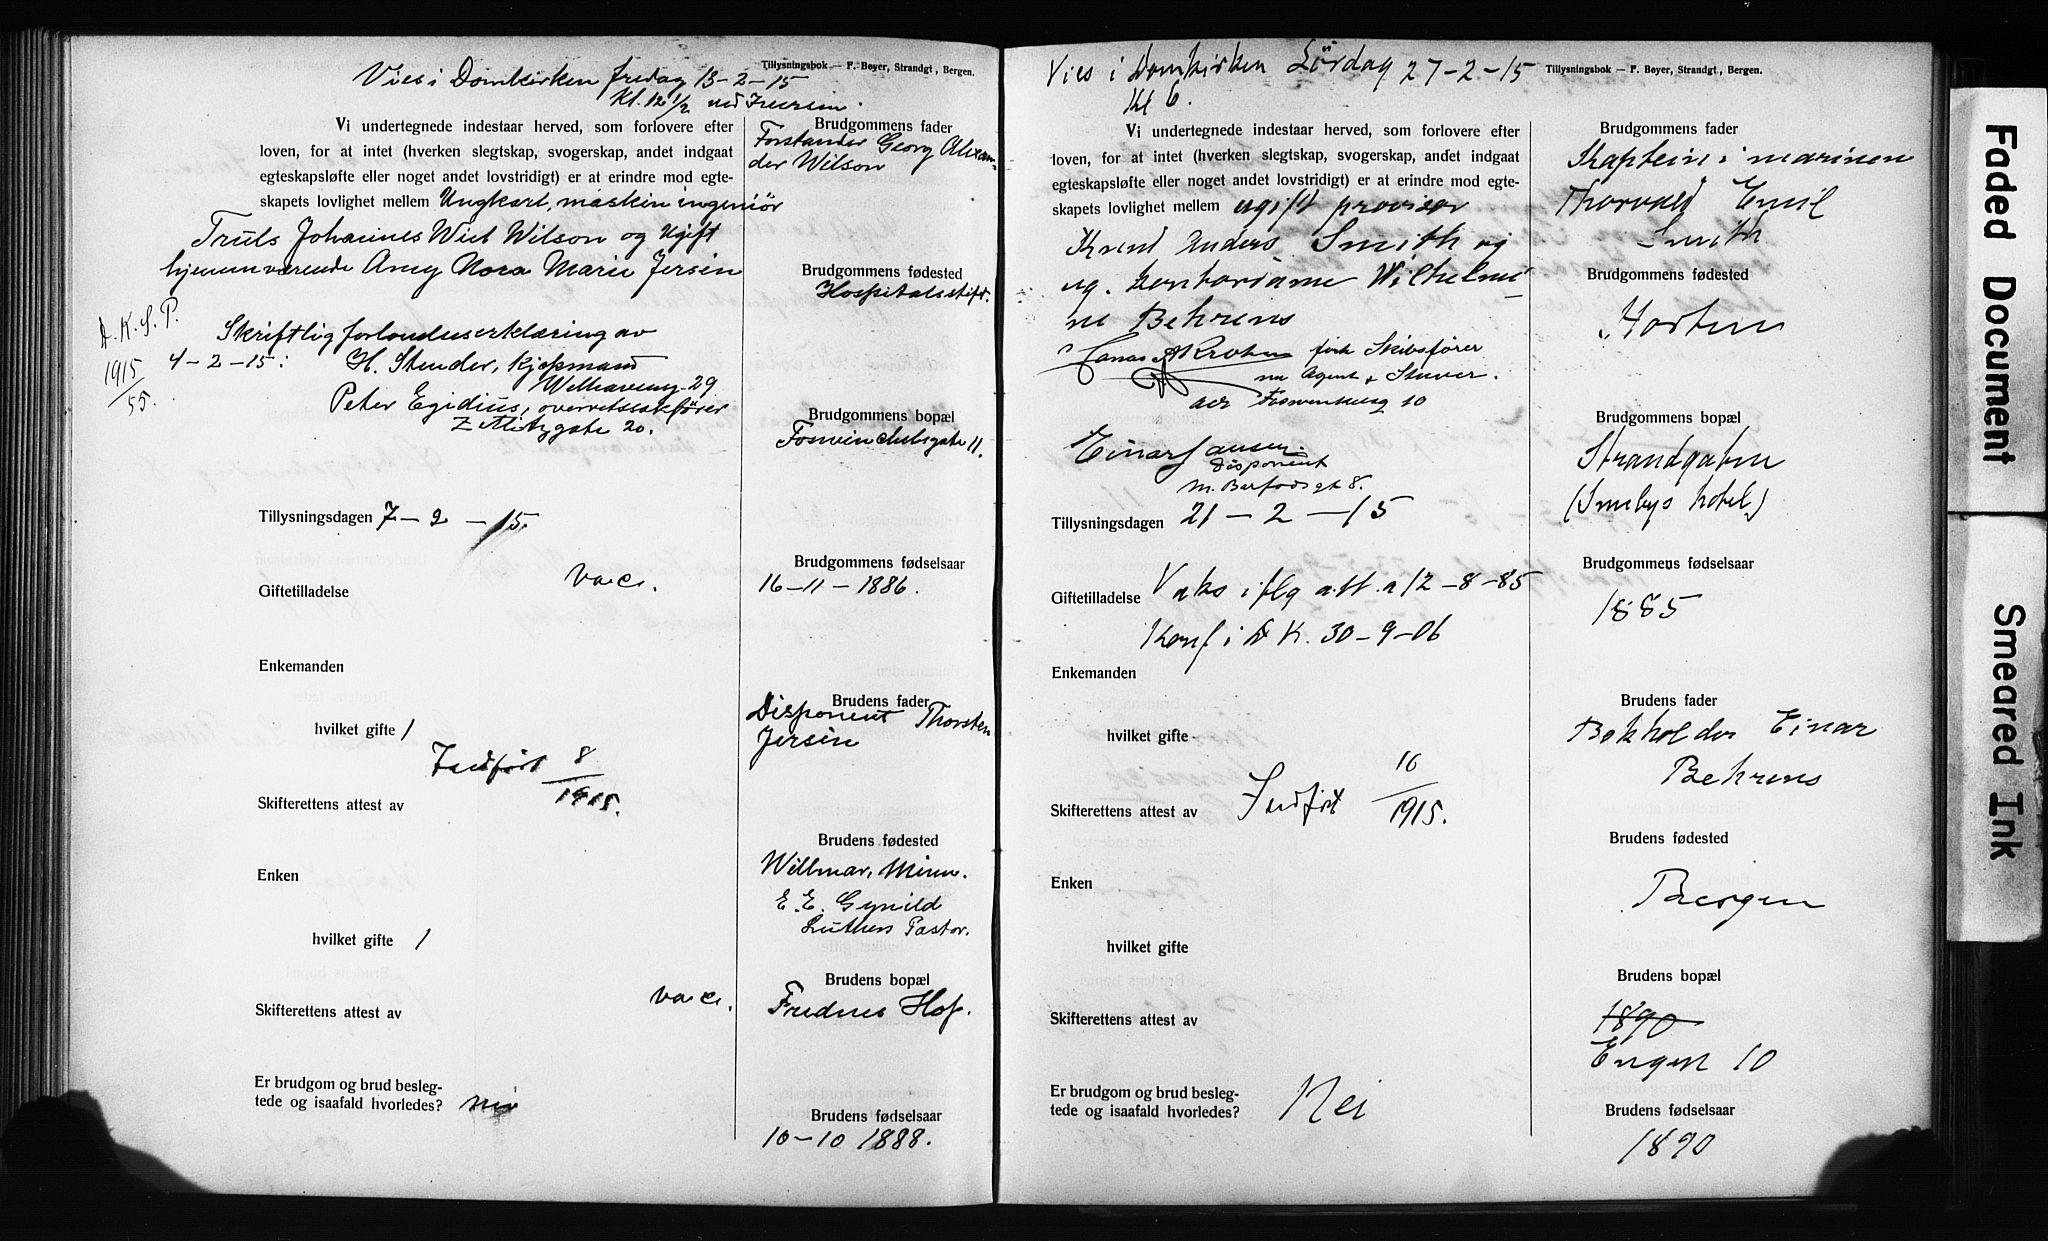 Tillysningsbok — F. Beyer, Strandgt, Bergen.
Vies i Domkirken fredag 13-2-15
Kl. 12 1/2 ved Iversen.
Vi undertegnede indestaar herved, som forlovere efter
loven, for at intet (hverken slegtskap, svogerskap, andet indgaat
egteskapsløfte eller noget andet lovstridigt) er at erindre mod egte-
skapets lovlighet mellem Ungkarl, maskiningeniör
Truls Johannes Wiel Wilson og ugift
hjemmeværende Amy Nora Marie Jersin
D. K. S. P.
1915
55.
Skriftlig forloverserklæring av
4-2-15: H. Stender, kjøpmand
Welhavensg. 29
Peter Egidius, overretssakfører
Zetlitzgate 20.
Tillysningsdagen 7-2-15.
Giftetilladelse vace.
Enkemanden
hvilket gifte 1
Indført 8
1915.
Skifterettens attest av
Enken
hvilket gifte 1
Skifterettens attest av vace.
Er brudgom og brud besleg-
tede og isaafald hvorledes? nei
Brudgommens fader
Forstander Georg Alexan-
der Wilson
Brudgommens fødested
Hospitalsstift.
Brudgommens bopæl
Fosswinckelsgate 11.
Brudgommens fødselsaar
16-11-1886.
Brudens fader
Disponent Thorsten
Jersin
Brudens fødested
Willmar, Minn.
E. E. Gynild
Luthers Pastor.
Brudens bopæl
Frednes Hop.
Brudens fødselsaar
10-10 1888.
Vies i Domkirken Lördag 27-2-15
Kl 6.
Tillysningsbok — F. Beyer, Strandgt, Bergen.
Vi undertegnede indestaar herved, som forlovere efter
loven, for at intet (hverken slegtskap, svogerskap, andet indgaat
egteskapsløfte eller noget andet lovstridigt) er at erindre mod egte-
skapets lovlighet mellem ugift provisor
Knud Anders Smith og
ug. kontordame Wilhelmi-
ne Behrens
Krohn Skibsfører
nu Agent & Stuver.
Foswinkelsg 10
Einar Jansen
Disponent
M. Barfodsgt 8.
Tillysningsdagen 21-2-15
Giftetilladelse Vaks i flg att. a 12-8-85
Konf i D K. 30-9-06
Enkemanden
hvilket gifte
Indført 16
1915.
Skifterettens attest av
Enken
hvilket gifte
Skifterettens attest av
Er brudgom og brud besleg-
tede og isaafald hvorledes? Nei
Brudgommens fader
Kaptein i marinen
Thorvald Emil
Smith
Brudgommens fødested
Horten
Brudgommens bopæl
Strandgaten
(Smebys hotel)
Brudgommens fødselsaar
1885
Brudens fader
Bokholder Einar
Behrens
Brudens fødested
Bergen
Brudens bopæl
1890
Engen 10
Brudens fødselsaar
1890
Faded Document
Smeared Ink